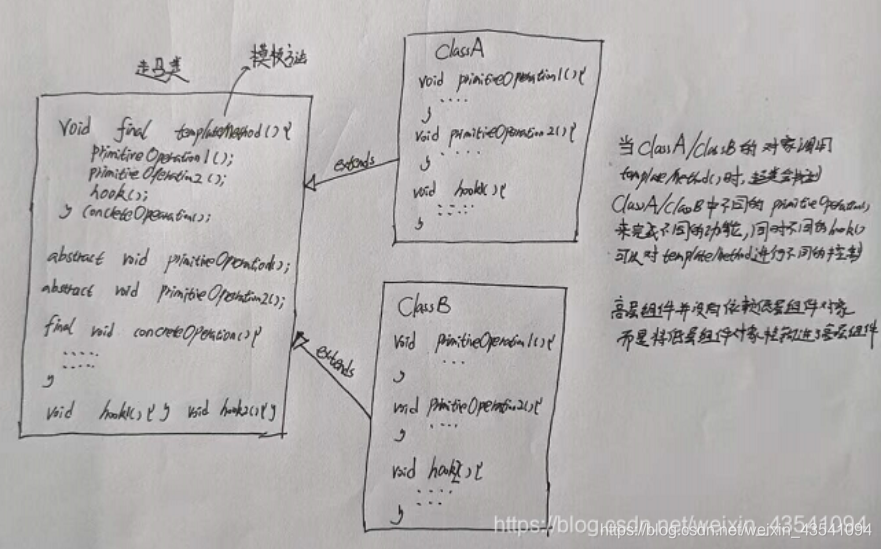 模板方法
void final templateMethod(){
primitiveOperation1();
primitiveOperatin2();
hook();
} concreteOperation();
abstract void primitiveOperation1();
abstract void primitiveOperation2();
final void concreteOperation(){
.....
.....
}
void hook1(){ } void hook2(){ }
extends
extends
ClassA
void primitiveOperation1(){
....
}
void primitiveOperation2(){
.....
}
void hook1(){
....
}
ClassB
void primitiveOperation1(){
...
}
void primitiveOperation2(){
....
}
void hook2(){
....
....
}
当ClassA/ClassB的对象调用
templateMethod()时,
ClassA/ClassB中不同的primitiveOperation()
来完成不同的功能,同时不同的hook()
可以对templateMethod进行不同的控制
高层组件并没有依赖低层组件对象
而是将低层组件对象挂钩进了高层组件
https://blog.csdn.net/weixin_43541094
https://blog.csdn.net/weixin_43541094